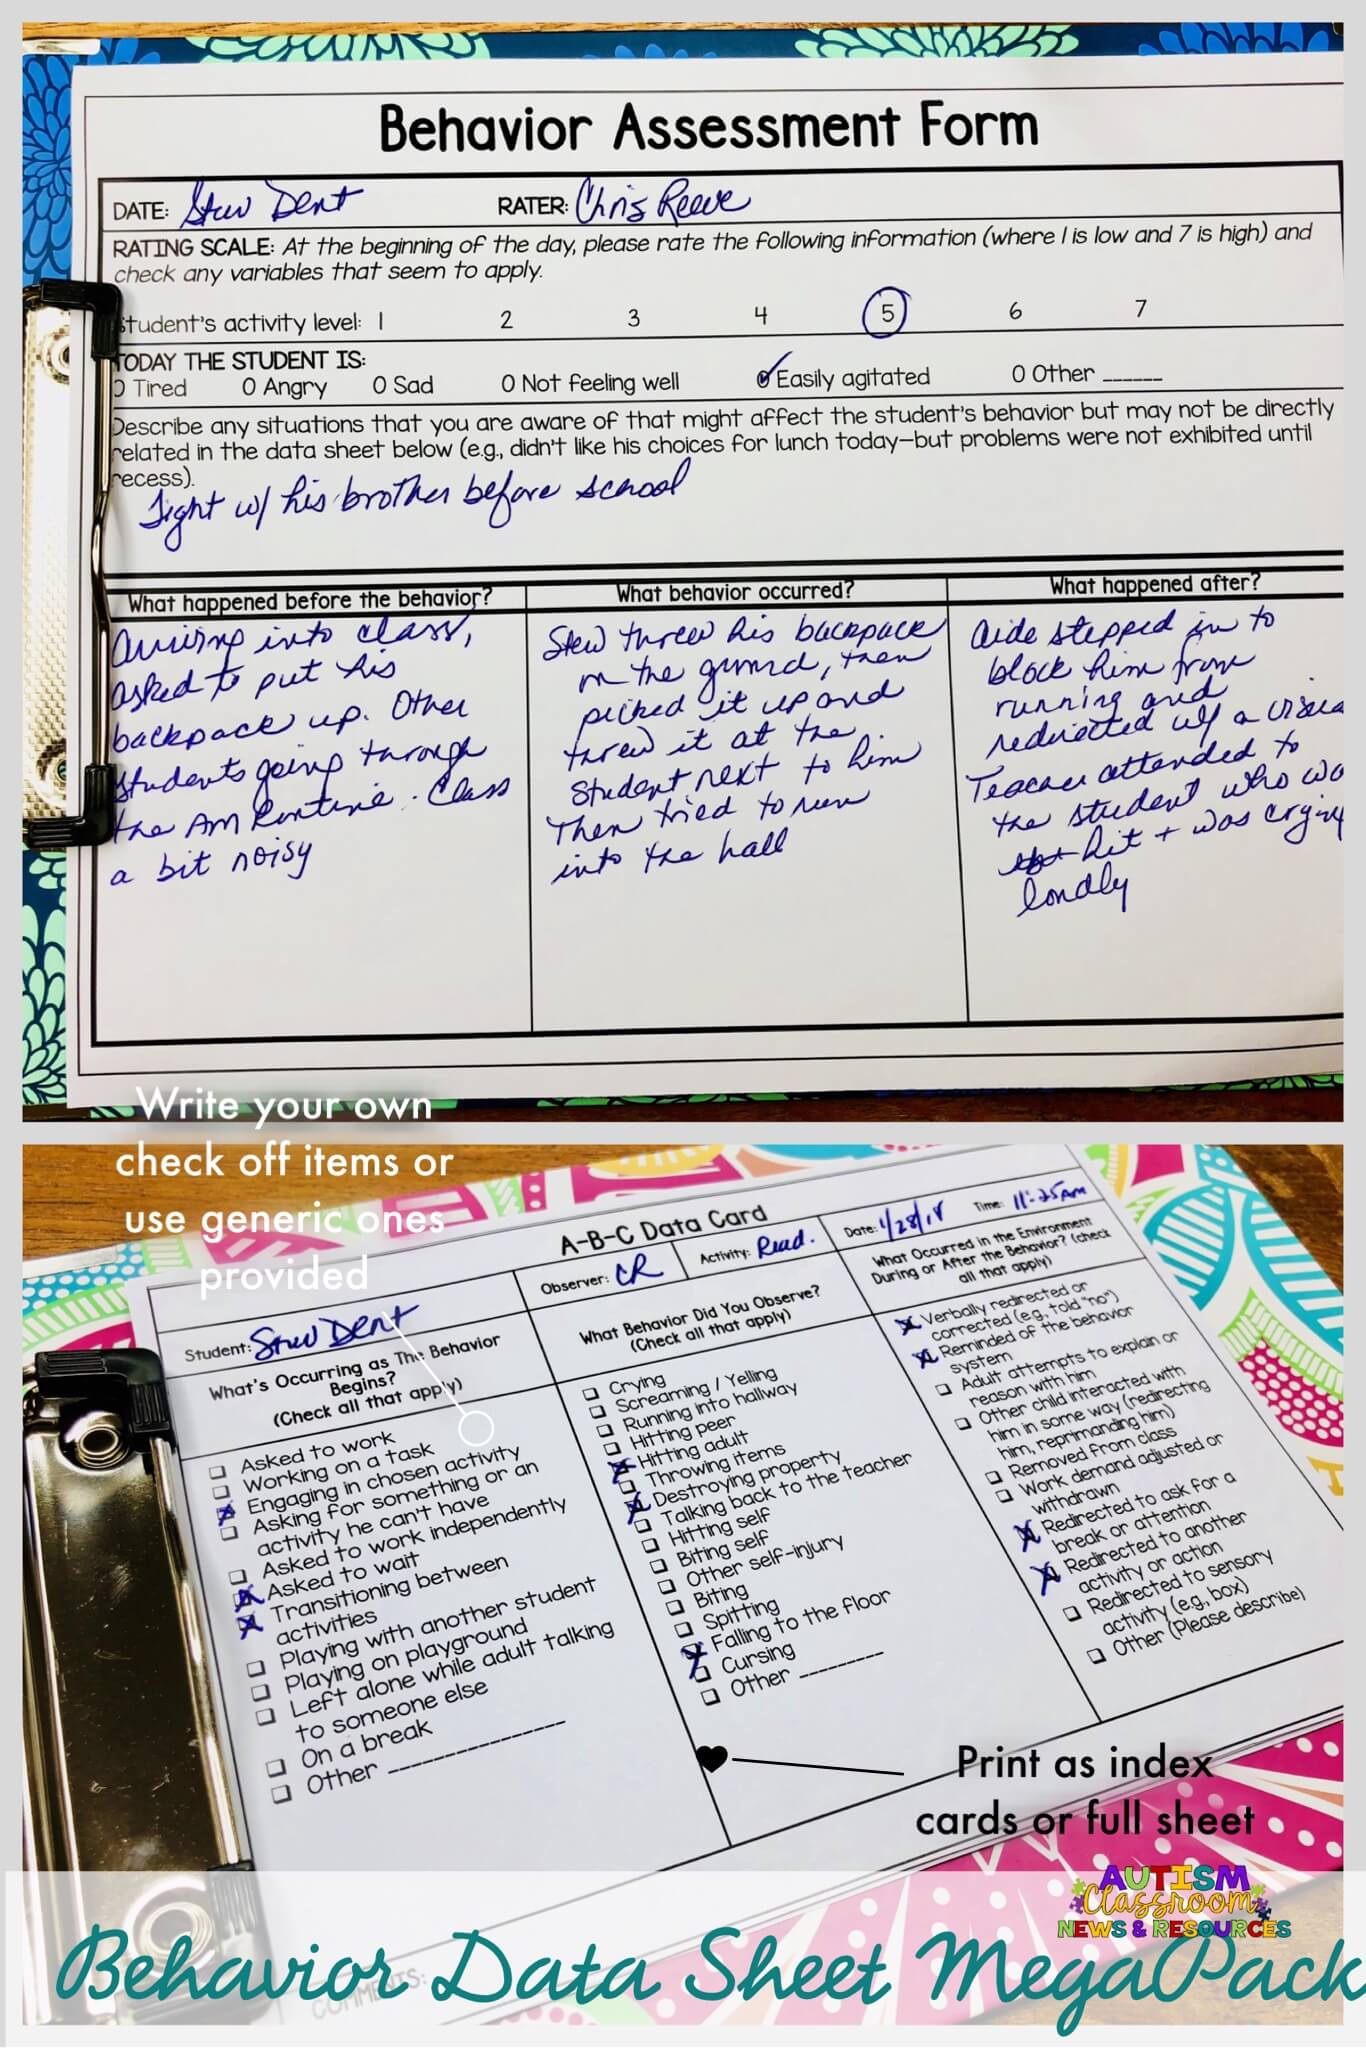 Behavior Assessment Form
DATE: Stew Dent RATER: Chris Reeve
RATING SCALE: At the beginning of the day, please rate the following information (where 1 is low and 7 is high) and
check any variables that seem to apply.
Student's activity level: 1 2 3 4 5 6 7
TODAY THE STUDENT IS:
O Tired O Angry O Sad O Not feeling well O Easily agitated O Other ______
Describe any situations that you are aware of that might affect the student's behavior but may not be directly
related in the data sheet below (e.g., didn't like his choices for lunch today—but problems were not exhibited until
recess).
Fight w/ his brother before school
What happened before the behavior?
Arriving into class,
asked to put his
backpack up. Other
students going through
the AM Routine. Class
a bit noisy
What behavior occurred?
Stew threw his backpack
on the ground, then
picked it up and
threw it at the
student next to him
Then tried to run
into the hall
What happened after?
Aide stepped in to
block him from
running and
redirected w/ a
Teacher attended to
the student who
hit + was crying
loudly
Write your own
check off items or
use generic ones
provided
A-B-C Data Card
Student: Stew Dent
Observer: CR
Activity: Read.
Date: 1/28/18 Time: 11:25 AM
What's Occurring as The Behavior
Begins?
(Check all that apply)
Asked to work
Working on a task
Engaging in chosen activity
Asking for something or an
activity he can't have
Asked to work independently
Asked to wait
Transitioning between
activities
Playing with another student
Playing on playground
Left alone while adult talking
to someone else
On a break
Other ____________
What Behavior Did You Observe?
(Check all that apply)
Crying
Screaming / Yelling
Running into hallway
Hitting peer
Hitting adult
Throwing items
Destroying property
Talking back to the teacher
Hitting self
Biting self
Other self-injury
Biting
Spitting
Falling to the floor
Cursing
Other ______
What Occurred in the Environment
During or After the Behavior? (check
all that apply)
Verbally redirected or
corrected (e.g., told "no")
Reminded of the behavior
system
Adult attempts to explain or
reason with him
Other child interacted with
him in some way (redirecting
him, reprimanding him)
Removed from class
Work demand adjusted or
withdrawn
Redirected to ask for a
break or attention
Redirected to another
activity or action
Redirected to sensory
activity (e.g., box)
Other (Please describe)
Print as index
cards or full sheet
COMMENTS:
AUTISM
Classroom
NEWS & RESOURCES
Behavior Data Sheet MegaPack